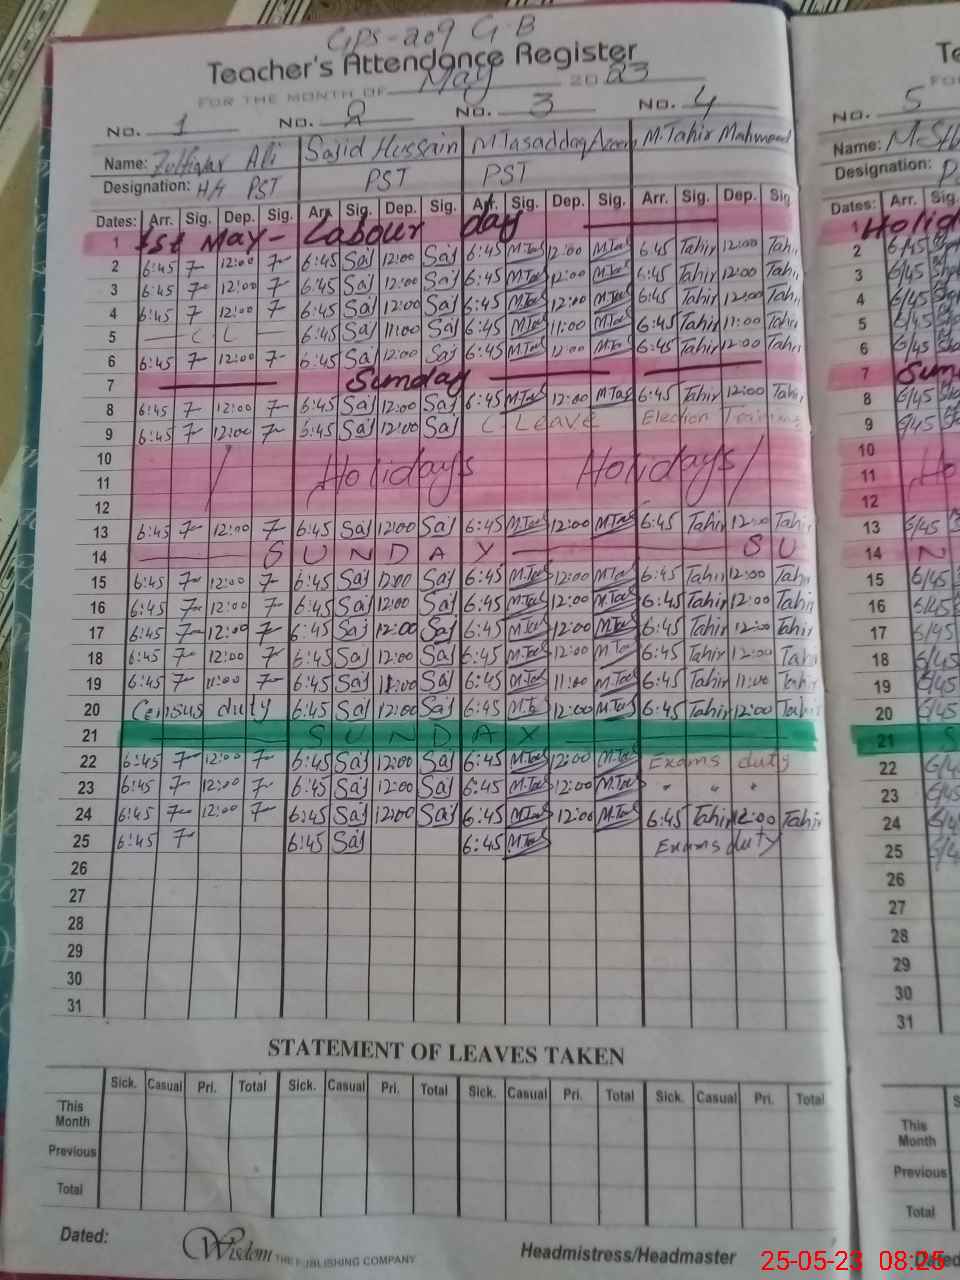 GPS-209 G-B
Teacher's Attendance Register
FOR THE MONTH OF May 2023
No. 1 No. 2 No. 3 No. 4 No. 5
Name: Zulfiqar Ali Sajid Hussain M.Tasaddaq M.Tahir Mahmood Name:
Designation: H/T PST PST PST Designation:
Dates: Arr. Sig. Dep. Sig. Arr. Sig. Dep. Sig. Arr. Sig. Dep. Sig. Arr. Sig. Dep. Sig. Dates: Arr. Sig.
1 1st May - Labour day 1 Holid
2 6:45 7 12:00 7 6:45 Saj 12:00 Saj 6:45 M.Tas 12:00 M.Tas 6:45 Tahir 12:00 Tahi 2 6/45
3 6:45 7 12:00 7 6:45 Saj 12:00 Saj 6:45 M.Tas 12:00 M.Tas 6:45 Tahir 12:00 Tahi 3 6/45
4 6:45 7 12:00 7 6:45 Saj 12:00 Saj 6:45 M.Tas 12:00 M.Tas 6:45 Tahir 12:00 Tahi 4 6/45
5 — C L — 6:45 Saj 11:00 Saj 6:45 M.Tas 11:00 M.Tas 6:45 Tahir 11:00 Tahir 5 6/45
6 6:45 7 12:00 7 6:45 Saj 12:00 Saj 6:45 M.Tas 12:00 M.Tas 6:45 Tahir 12:00 Tahi 6 6/45
7 Sunday 7 Sun
8 6:45 7 12:00 7 6:45 Saj 12:00 Saj 6:45 M.Tas 12:00 M.Tas 6:45 Tahir 12:00 Tahi 8 6/45
9 6:45 7 12:00 7 6:45 Saj 12:00 Saj C. Leave Election Training 9 6/45
10 Holidays Holidays 10
11 11 Ho
12 12
13 6:45 7 12:00 7 6:45 Saj 12:00 Saj 6:45 M.Tas 12:00 M.Tas 6:45 Tahir 12:00 Tahi 13 6/45
14 S U N D A Y S U 14 N
15 6:45 7 12:00 7 6:45 Saj 12:00 Saj 6:45 M.Tas 12:00 M.Tas 6:45 Tahir 12:00 Tahi 15 6/45
16 6:45 7 12:00 7 6:45 Saj 12:00 Saj 6:45 M.Tas 12:00 M.Tas 6:45 Tahir 12:00 Tahi 16 6/45
17 6:45 7 12:00 7 6:45 Saj 12:00 Saj 6:45 M.Tas 12:00 M.Tas 6:45 Tahir 12:00 Tahi 17 6/45
18 6:45 7 12:00 7 6:45 Saj 12:00 Saj 6:45 M.Tas 12:00 M.Tas 6:45 Tahir 12:00 Tahi 18 6/45
19 6:45 7 11:00 7 6:45 Saj 11:00 Saj 6:45 M.Tas 11:00 M.Tas 6:45 Tahir 11:00 Tahi 19 6/45
20 Census duty 6:45 Saj 12:00 Saj 6:45 M.Tas 12:00 M.Tas 6:45 Tahir 12:00 Tahir 20 6/45
21 S U N D A Y 21 S
22 6:45 7 12:00 7 6:45 Saj 12:00 Saj 6:45 M.Tas 12:00 M.Tas Exams duty 22 6/4
23 6:45 7 12:00 7 6:45 Saj 12:00 Saj 6:45 M.Tas 12:00 M.Tas " " " 23 6/45
24 6:45 7 12:00 7 6:45 Saj 12:00 Saj 6:45 M.Tas 12:00 M.Tas 6:45 Tahir 12:00 Tahir 24 6/4
25 6:45 7 6:45 Saj 6:45 M.Tas Exams duty 25 6/4
26 26
27 27
28 28
29 29
30 30
31 31
STATEMENT OF LEAVES TAKEN
Sick. Casual Pri. Total Sick. Casual Pri. Total Sick. Casual Pri. Total Sick. Casual Pri. Total
This Month This Month
Previous Previous
Total Total
Dated: Wisdom THE PUBLISHING COMPANY Headmistress/Headmaster Dated:
25-05-23 08:25